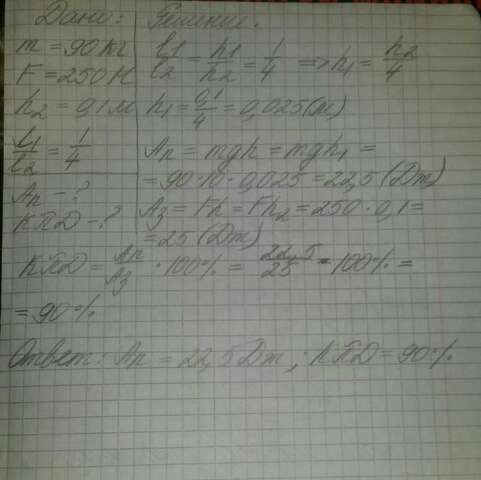 Дано:
m = 90 кг
F = 250 Н
h2 = 0,1 м
l1/l2 = 1/4
Ап - ?
КПД - ?
Решение.
l1/l2 = h1/h2 = 1/4 => h1 = h2/4
h1 = 0,1/4 = 0,025 (м)
Ап = mgh = mgh1 =
= 90 · 10 · 0,025 = 22,5 (Дж)
Аз = Fh = Fh2 = 250 · 0,1 =
= 25 (Дж)
КПД = Ап/Аз · 100% = 22,5/25 · 100% =
= 90%
Ответ: Ап = 22,5 Дж ; КПД = 90%